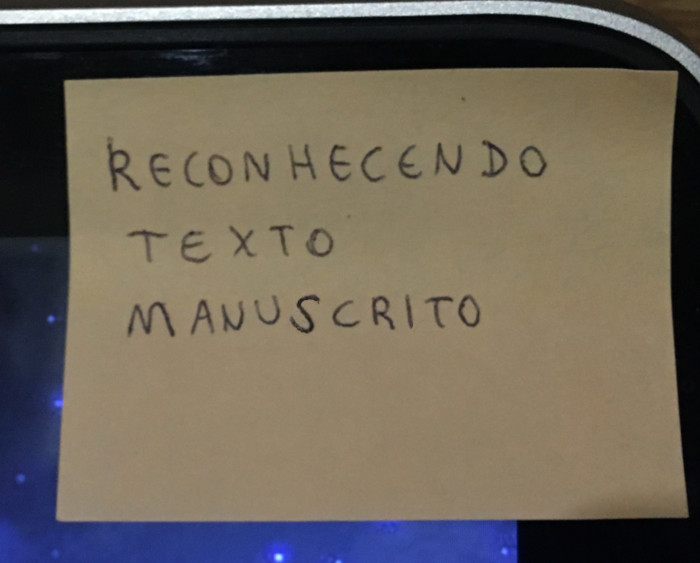 RECONHECENDO
TEXTO
MANUSCRITO